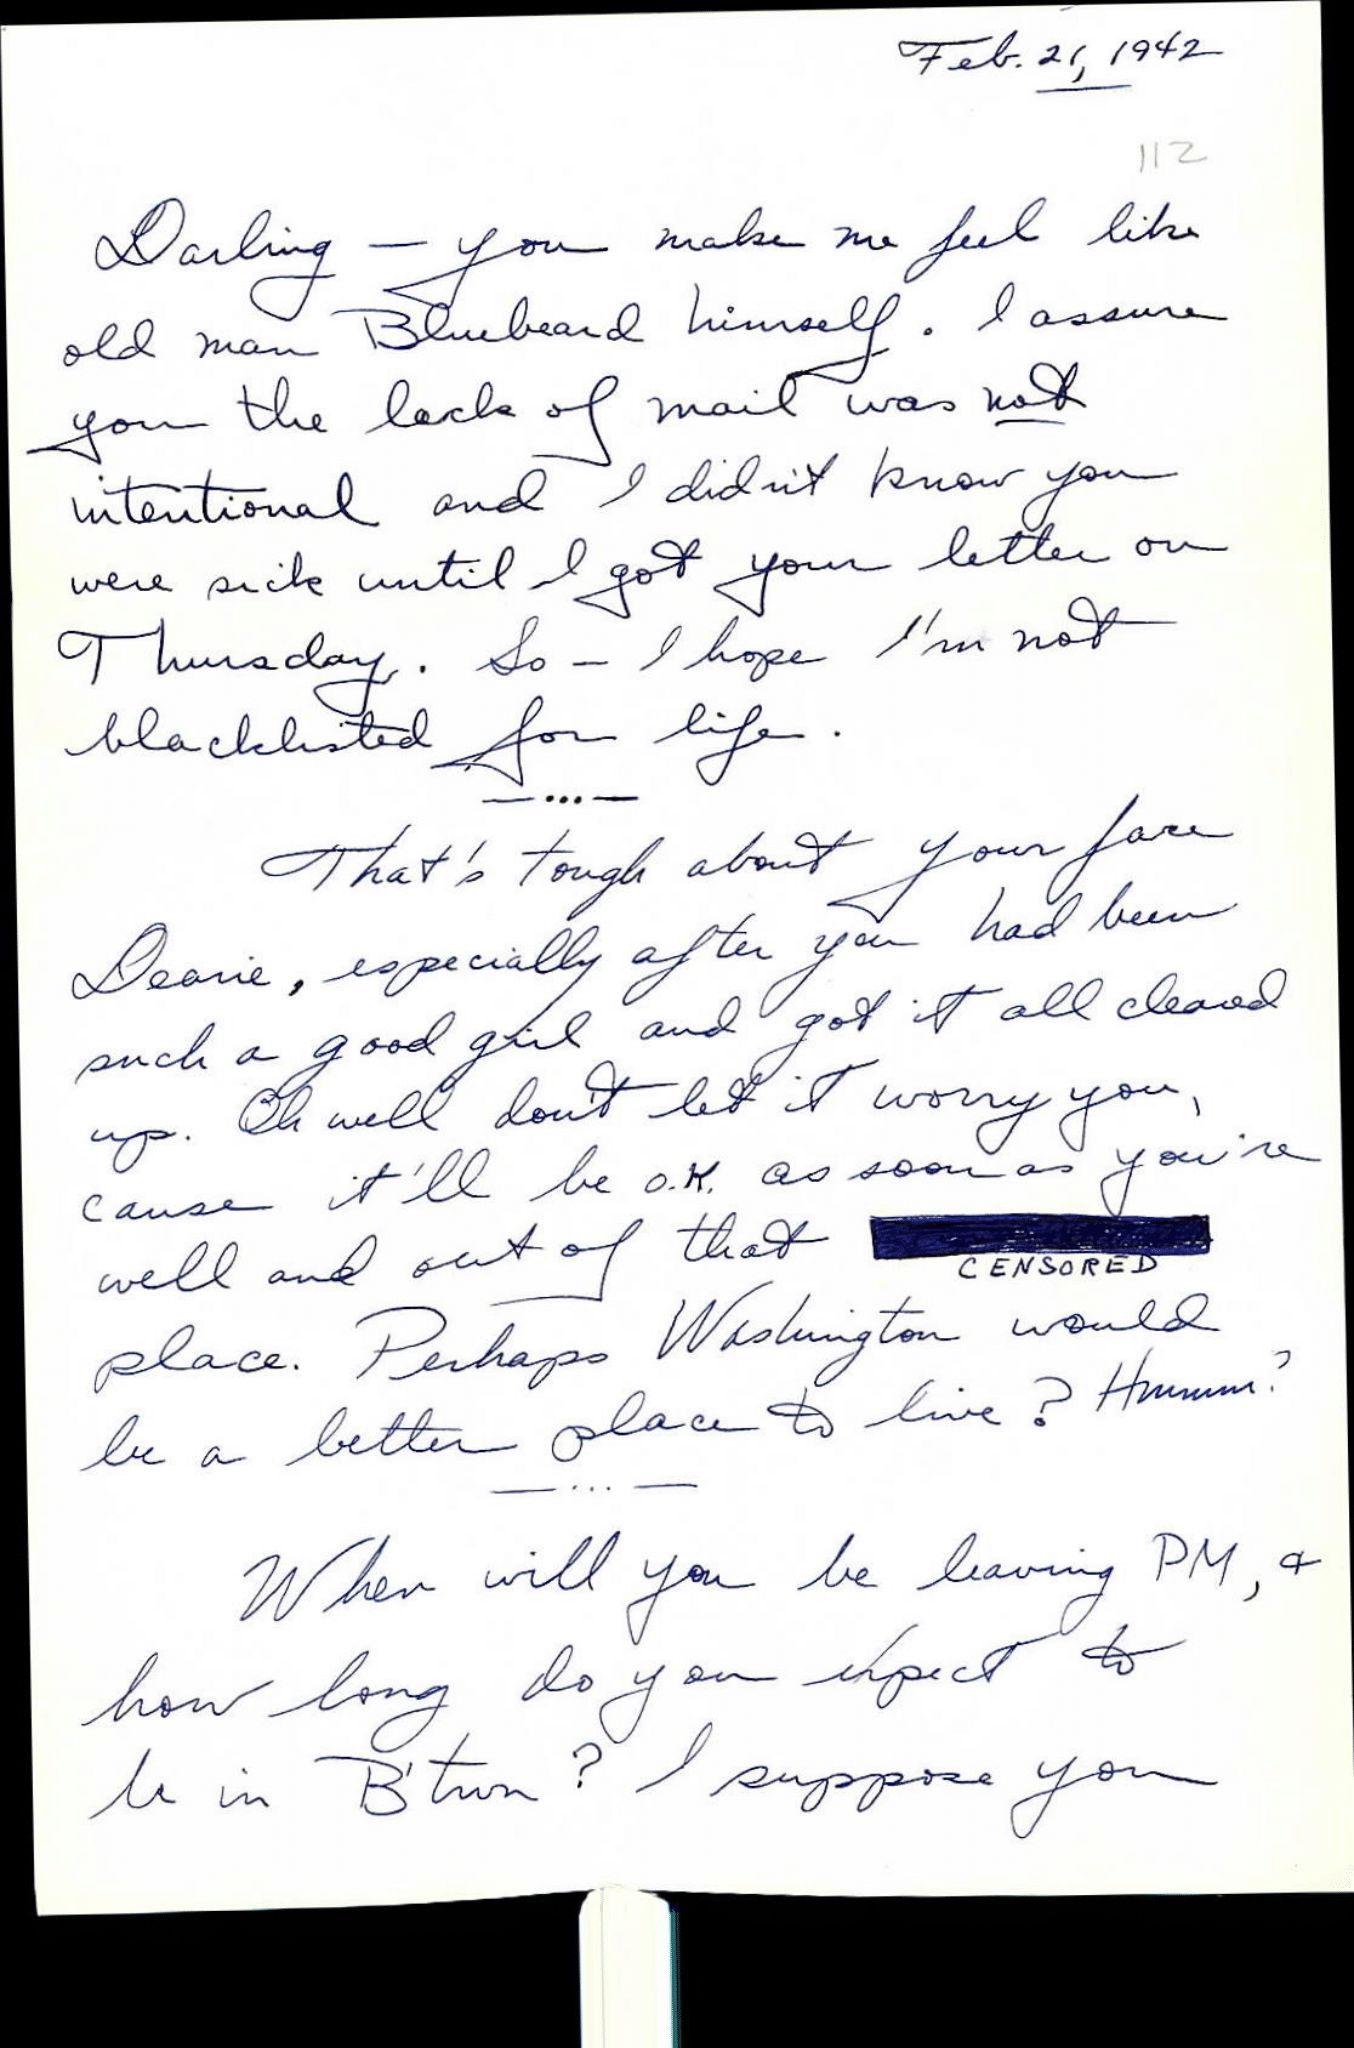 Feb. 21, 1942
112
Darling — you make me feel like
old man Bluebeard himself. I assure
you the lack of mail was not
intentional and I didn't know you
were sick until I got your letter on
Thursday. So — I hope I'm not
blacklisted for life.
— ... —
That's tough about your face
Dearie, especially after you had been
such a good girl and got it all cleared
up. Oh well don't let it worry you,
cause it'll be o.k. as soon as you're
well and out of that
CENSORED
place. Perhaps Washington would
be a better place to live? Hmmmm?
— ... —
When will you be leaving PM, &
how long do you expect to
be in B'twn? I suppose you